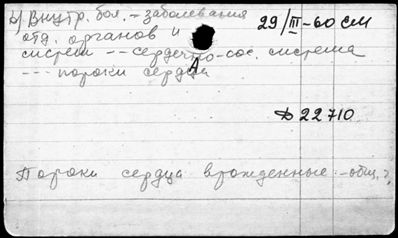 Внутр. бол. - заболевания
отд. органов и
систем -- сердечно-сос. система
--- пороки сердца
29/III-60 см
Д 22710
Пороки сердца врожденные - общ.